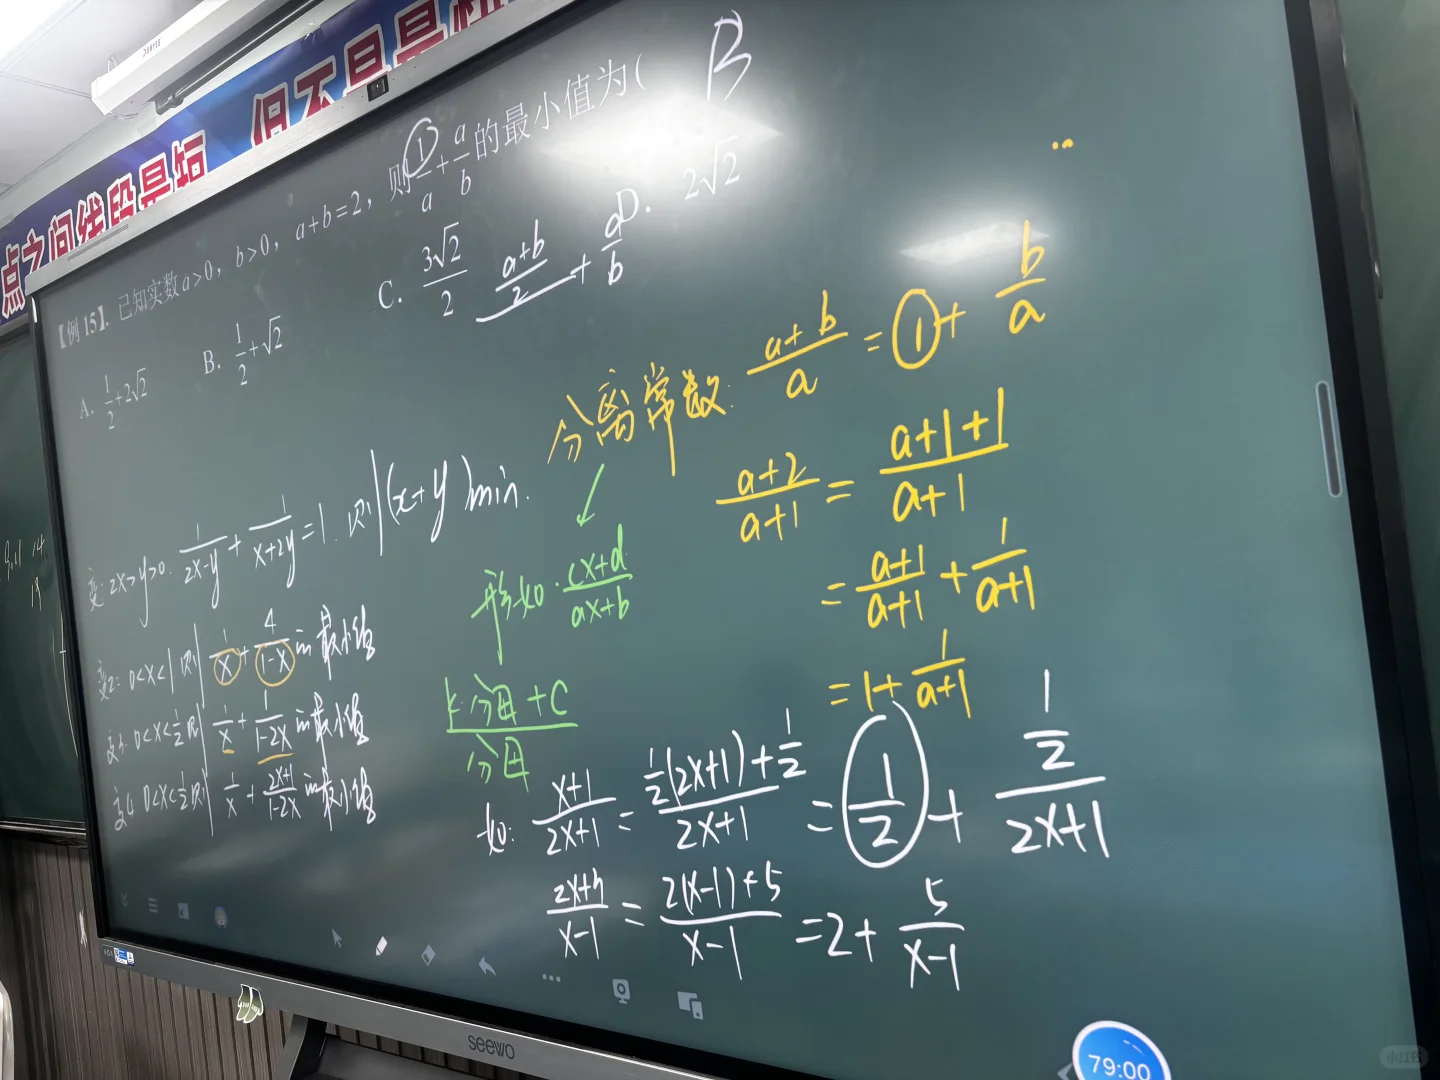 点之间线段最短 但不是
【例 15】. 已知实数a>0，b>0，a+b=2，则 1/a + a/b 的最小值为( B
A. 1/2+2√2
B. 1/2+√2
C. 3√2/2
D. 2√2
(a+b)/2 + a/b
分离常数: (a+b)/a = 1 + b/a
(a+2)/(a+1) = (a+1+1)/(a+1)
= (a+1)/(a+1) + 1/(a+1)
= 1 + 1/(a+1)
形如: (cx+d)/(ax+b)
(k·分母+C)/分母
变: 2x>y>0. 1/(2x-y) + 1/(x+2y) = 1. 则 (x+y)min.
变2: 0<x<1 则 1/x + 4/(1-x) 的最小值
变3: 0<x<1/2 则 1/x + 1/(1-2x) 的最小值
变4 0<x<1/2 则 1/x + (2x+1)/(1-2x) 的最小值
如: (x+1)/(2x+1) = (1/2(2x+1)+1/2)/(2x+1) = 1/2 + (1/2)/(2x+1)
= (2(x-1)+5)/(x-1) = 2 + 5/(x-1)
seewo
79:00
小红书